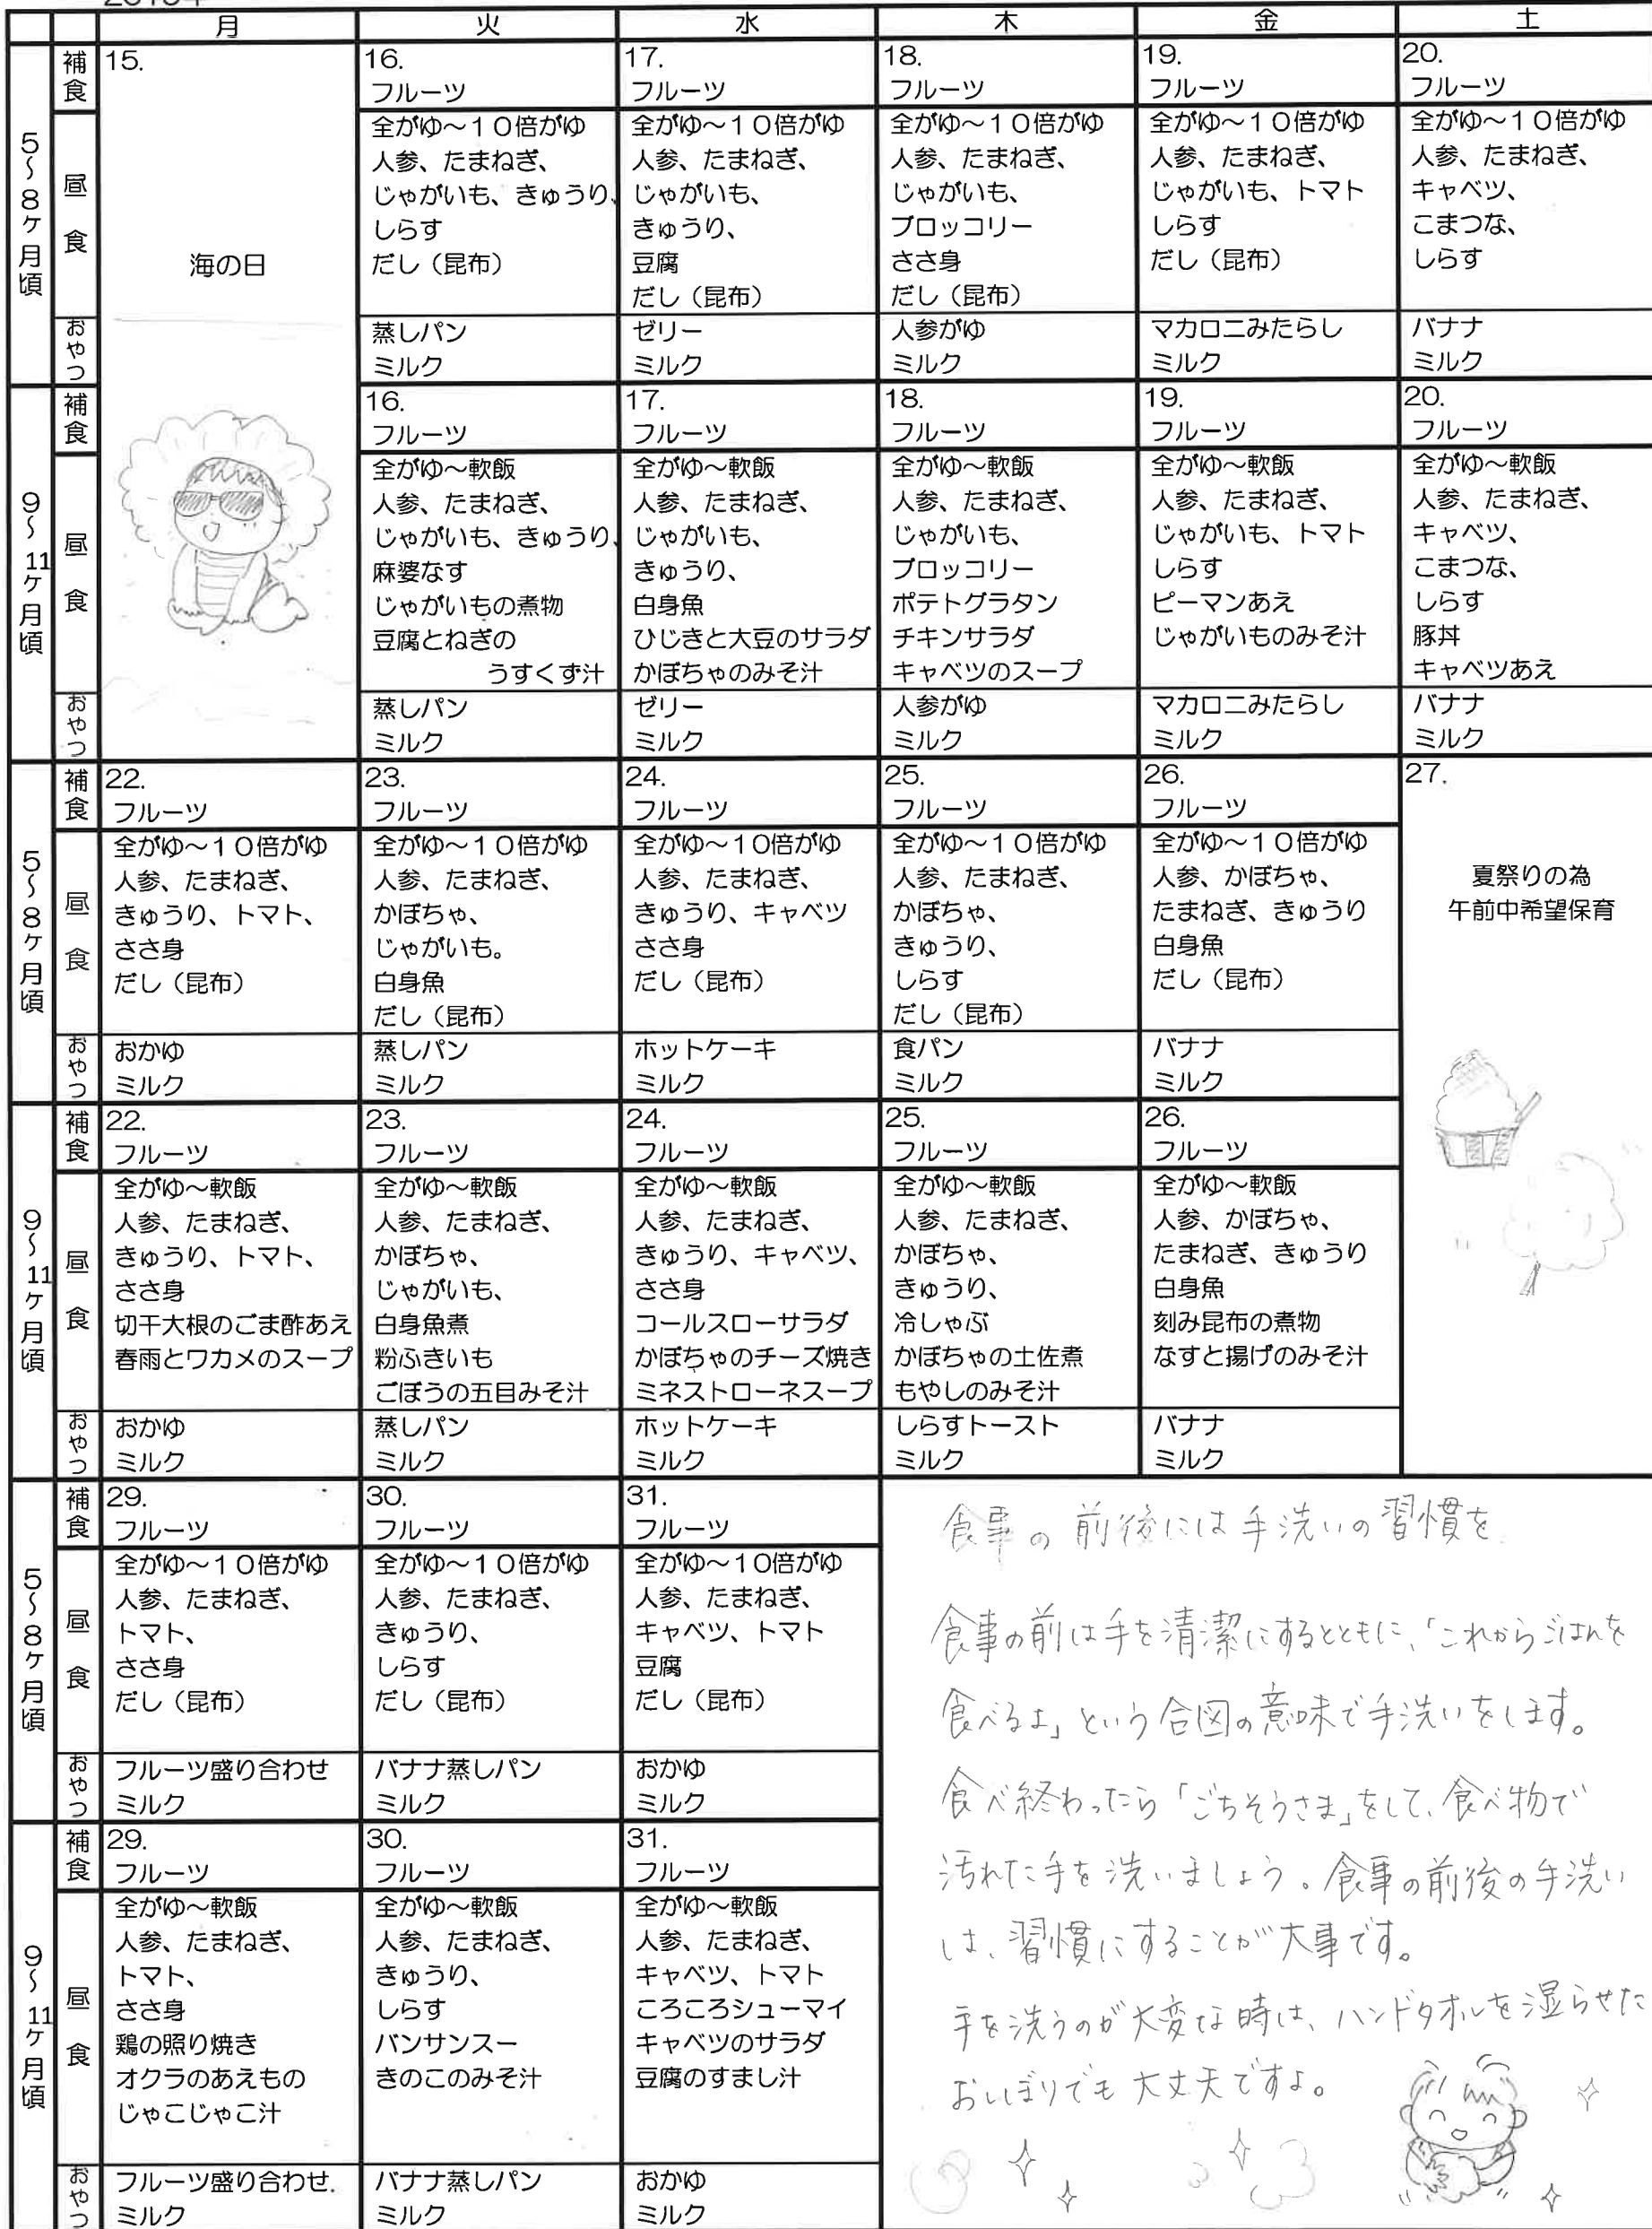 月 火 水 木 金 土
5～8ヶ月頃
補食
15.
16.
フルーツ
17.
フルーツ
18.
フルーツ
19.
フルーツ
20.
フルーツ
昼食
海の日
全がゆ～１０倍がゆ
人参、たまねぎ、
じゃがいも、きゅうり、
しらす
だし（昆布）
全がゆ～１０倍がゆ
人参、たまねぎ、
じゃがいも、
きゅうり、
豆腐
だし（昆布）
全がゆ～１０倍がゆ
人参、たまねぎ、
じゃがいも、
ブロッコリー
ささ身
だし（昆布）
全がゆ～１０倍がゆ
人参、たまねぎ、
じゃがいも、トマト
しらす
だし（昆布）
全がゆ～１０倍がゆ
人参、たまねぎ、
キャベツ、
こまつな、
しらす
おやつ
蒸しパン
ミルク
ゼリー
ミルク
人参がゆ
ミルク
マカロニみたらし
ミルク
バナナ
ミルク
9～11ヶ月頃
補食
16.
フルーツ
17.
フルーツ
18.
フルーツ
19.
フルーツ
20.
フルーツ
昼食
全がゆ～軟飯
人参、たまねぎ、
じゃがいも、きゅうり、
麻婆なす
じゃがいもの煮物
豆腐とねぎの
うすくず汁
全がゆ～軟飯
人参、たまねぎ、
じゃがいも、
きゅうり、
白身魚
ひじきと大豆のサラダ
かぼちゃのみそ汁
全がゆ～軟飯
人参、たまねぎ、
じゃがいも、
ブロッコリー
ポテトグラタン
チキンサラダ
キャベツのスープ
全がゆ～軟飯
人参、たまねぎ、
じゃがいも、トマト
しらす
ピーマンあえ
じゃがいものみそ汁
全がゆ～軟飯
人参、たまねぎ、
キャベツ、
こまつな、
しらす
豚丼
キャベツあえ
おやつ
蒸しパン
ミルク
ゼリー
ミルク
人参がゆ
ミルク
マカロニみたらし
ミルク
バナナ
ミルク
5～8ヶ月頃
補食
22.
フルーツ
23.
フルーツ
24.
フルーツ
25.
フルーツ
26.
フルーツ
27.
夏祭りの為
午前中希望保育
昼食
全がゆ～１０倍がゆ
人参、たまねぎ、
きゅうり、トマト、
ささ身
だし（昆布）
全がゆ～１０倍がゆ
人参、たまねぎ、
かぼちゃ、
じゃがいも。
白身魚
だし（昆布）
全がゆ～１０倍がゆ
人参、たまねぎ、
きゅうり、キャベツ
ささ身
だし（昆布）
全がゆ～１０倍がゆ
人参、たまねぎ、
かぼちゃ、
きゅうり、
しらす
だし（昆布）
全がゆ～１０倍がゆ
人参、かぼちゃ、
たまねぎ、きゅうり
白身魚
だし（昆布）
おやつ
おかゆ
ミルク
蒸しパン
ミルク
ホットケーキ
ミルク
食パン
ミルク
バナナ
ミルク
9～11ヶ月頃
補食
22.
フルーツ
23.
フルーツ
24.
フルーツ
25.
フルーツ
26.
フルーツ
昼食
全がゆ～軟飯
人参、たまねぎ、
きゅうり、トマト、
ささ身
切干大根のごま酢あえ
春雨とワカメのスープ
全がゆ～軟飯
人参、たまねぎ、
かぼちゃ、
じゃがいも、
白身魚煮
粉ふきいも
ごぼうの五目みそ汁
全がゆ～軟飯
人参、たまねぎ、
きゅうり、キャベツ、
ささ身
コールスローサラダ
かぼちゃのチーズ焼き
ミネストローネスープ
全がゆ～軟飯
人参、たまねぎ、
かぼちゃ、
きゅうり、
冷しゃぶ
かぼちゃの土佐煮
もやしのみそ汁
全がゆ～軟飯
人参、かぼちゃ、
たまねぎ、きゅうり
白身魚
刻み昆布の煮物
なすと揚げのみそ汁
おやつ
おかゆ
ミルク
蒸しパン
ミルク
ホットケーキ
ミルク
しらすトースト
ミルク
バナナ
ミルク
5～8ヶ月頃
補食
29.
フルーツ
30.
フルーツ
31.
フルーツ
昼食
全がゆ～１０倍がゆ
人参、たまねぎ、
トマト、
ささ身
だし（昆布）
全がゆ～１０倍がゆ
人参、たまねぎ、
きゅうり、
しらす
だし（昆布）
全がゆ～１０倍がゆ
人参、たまねぎ、
キャベツ、トマト
豆腐
だし（昆布）
おやつ
フルーツ盛り合わせ
ミルク
バナナ蒸しパン
ミルク
おかゆ
ミルク
9～11ヶ月頃
補食
29.
フルーツ
30.
フルーツ
31.
フルーツ
昼食
全がゆ～軟飯
人参、たまねぎ、
トマト、
ささ身
鶏の照り焼き
オクラのあえもの
じゃこじゃこ汁
全がゆ～軟飯
人参、たまねぎ、
きゅうり、
しらす
バンサンスー
きのこのみそ汁
全がゆ～軟飯
人参、たまねぎ、
キャベツ、トマト
ころころシューマイ
キャベツのサラダ
豆腐のすまし汁
おやつ
フルーツ盛り合わせ.
ミルク
バナナ蒸しパン
ミルク
おかゆ
ミルク
食事の前後には手洗いの習慣を
食事の前は手を清潔にするとともに、「これからごはんを
食べるよ」という合図の意味で手洗いをします。
食べ終わったら「ごちそうさま」をして、食べ物で
汚れた手を洗いましょう。食事の前後の手洗い
は、習慣にすることが大事です。
手を洗うのが大変な時は、ハンドタオルを湿らせた
おしぼりでも大丈夫ですよ。